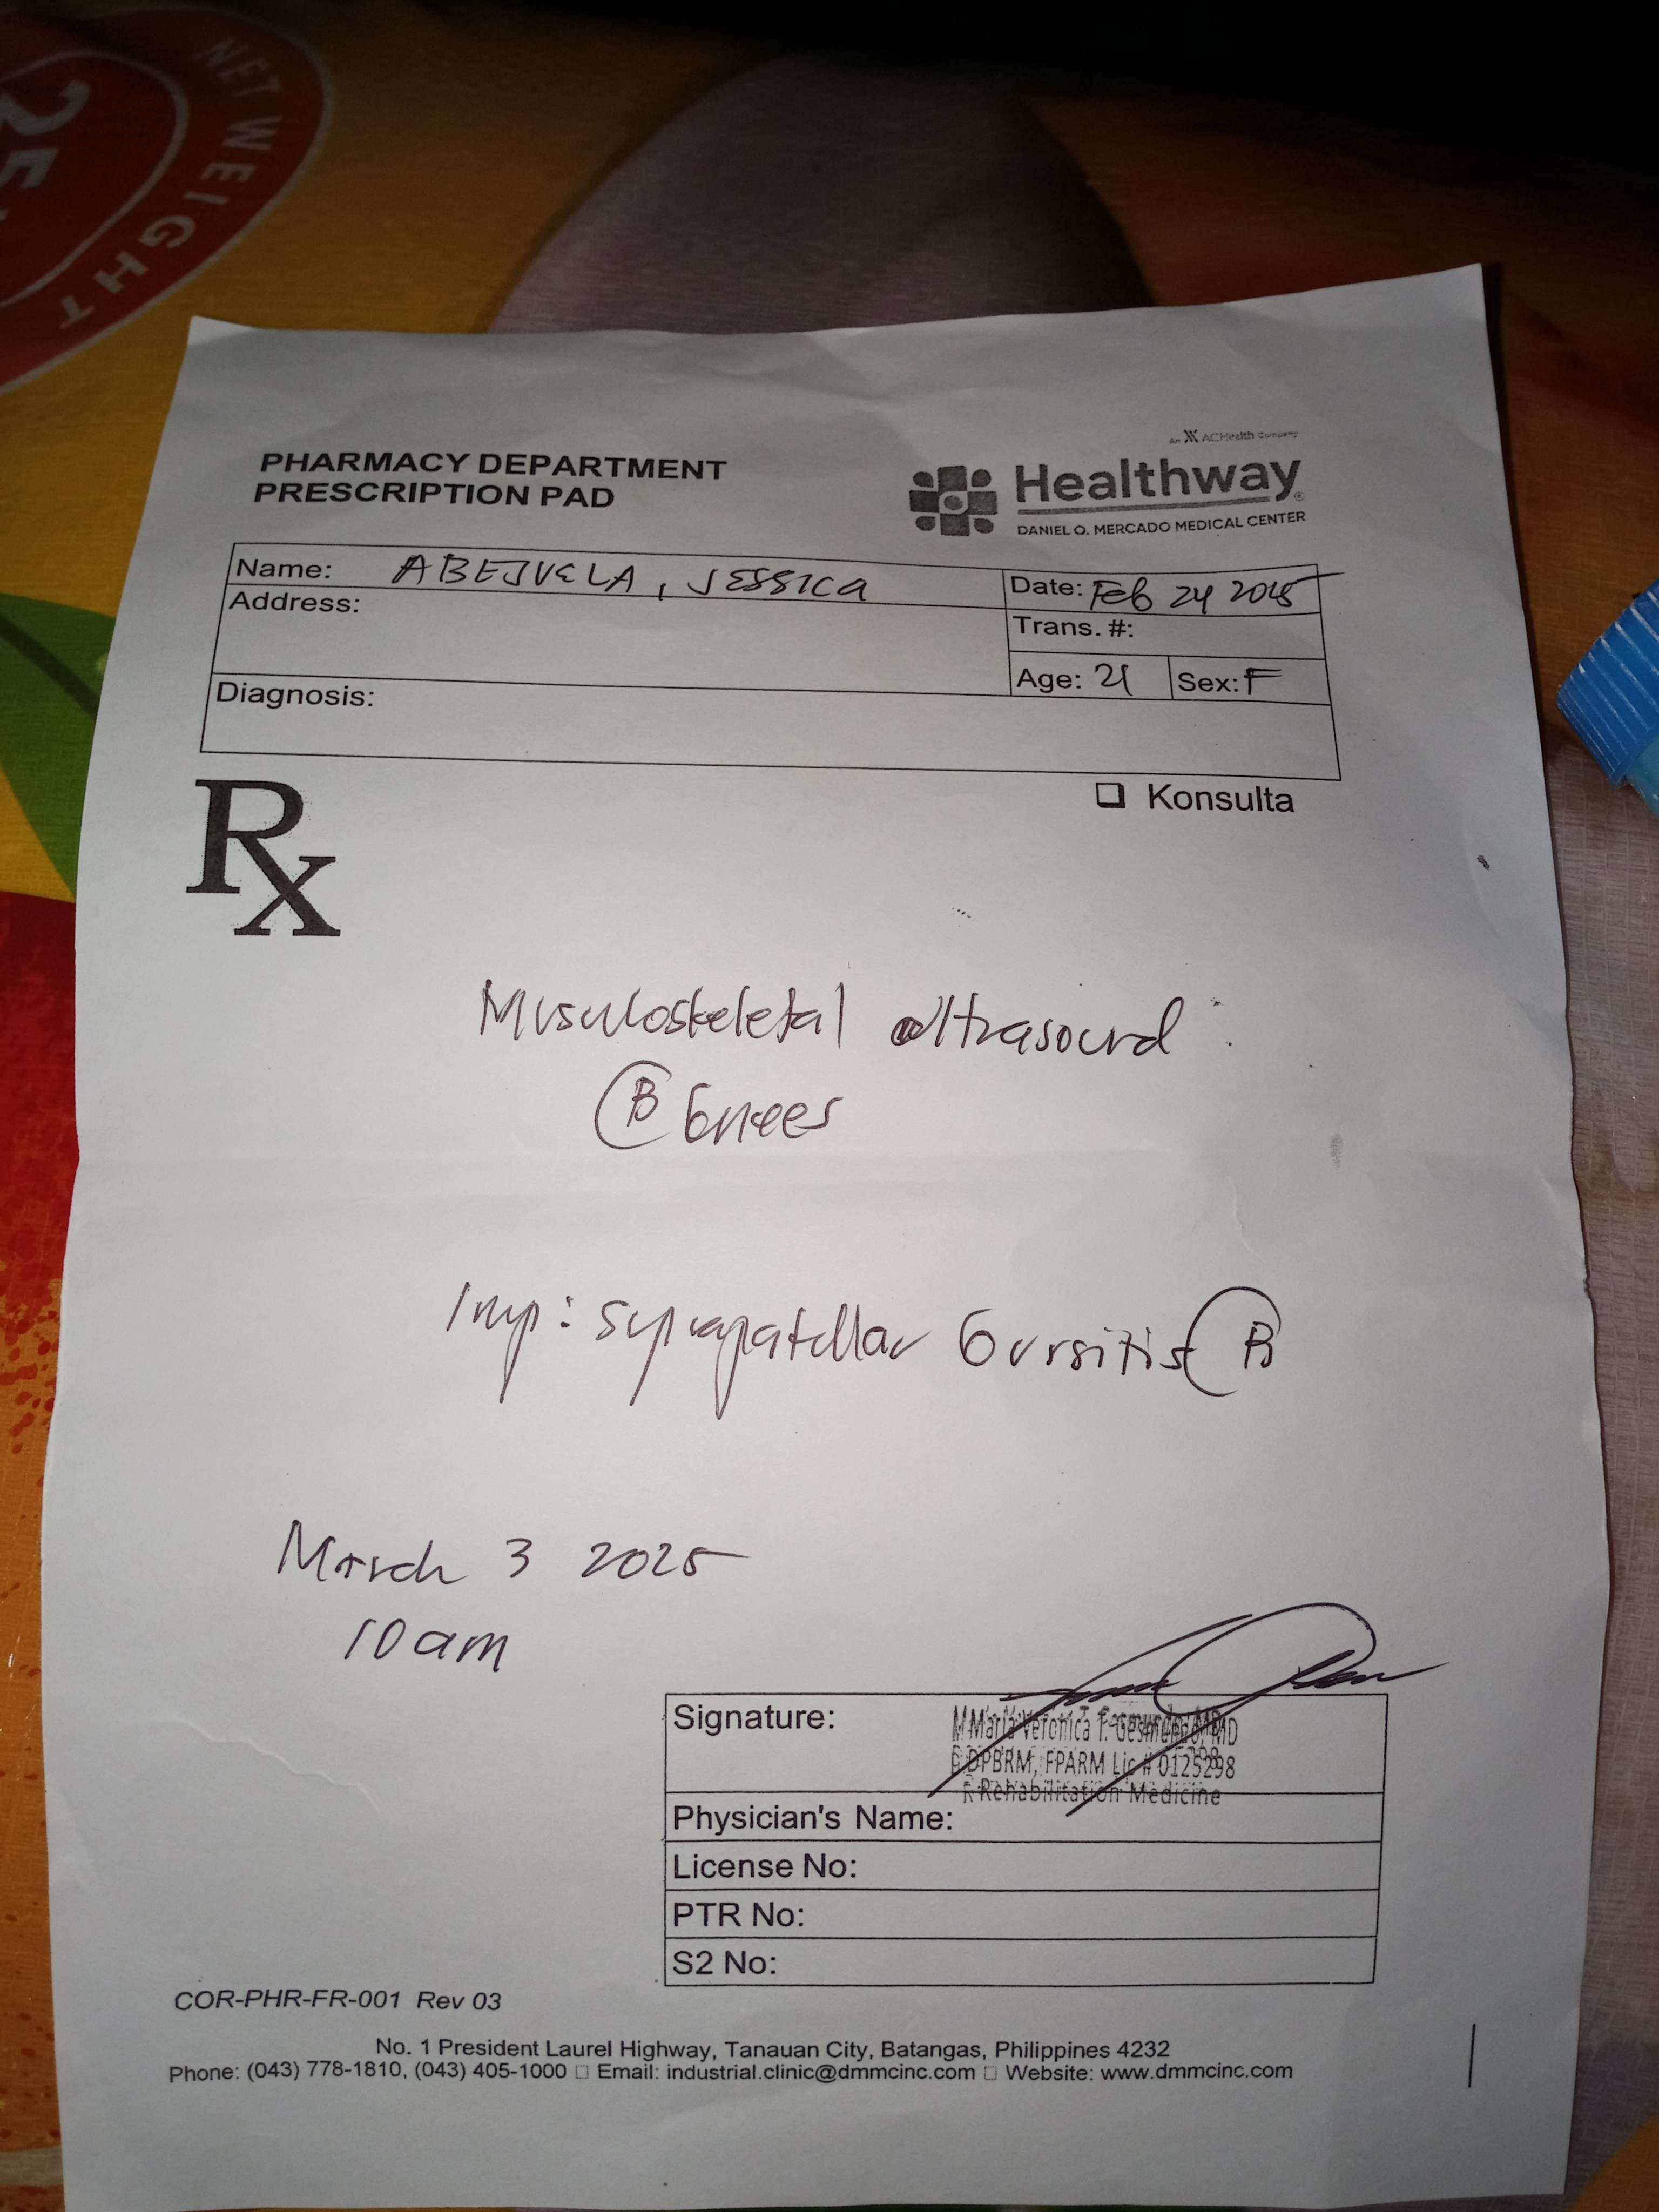 NET WEIGHT
25
An ACHealth Company
PHARMACY DEPARTMENT
PRESCRIPTION PAD
Healthway
DANIEL O. MERCADO MEDICAL CENTER
Name: ABEJUELA, JESSICA
Date: Feb 24 2025
Address:
Trans. #:
Age: 21 Sex: F
Diagnosis:
Konsulta
Rx
Musculoskeletal ultrasound:
B knees
Imp: Suprapatellar bursitis B
March 3 2025
10am
Signature:
Maria Veronica T. Gesmundo, MD
DPBRM, FPARM Lic # 0125298
Rehabilitation Medicine
Physician's Name:
License No:
PTR No:
S2 No:
COR-PHR-FR-001 Rev 03
No. 1 President Laurel Highway, Tanauan City, Batangas, Philippines 4232
Phone: (043) 778-1810, (043) 405-1000 □ Email: industrial.clinic@dmmcinc.com □ Website: www.dmmcinc.com